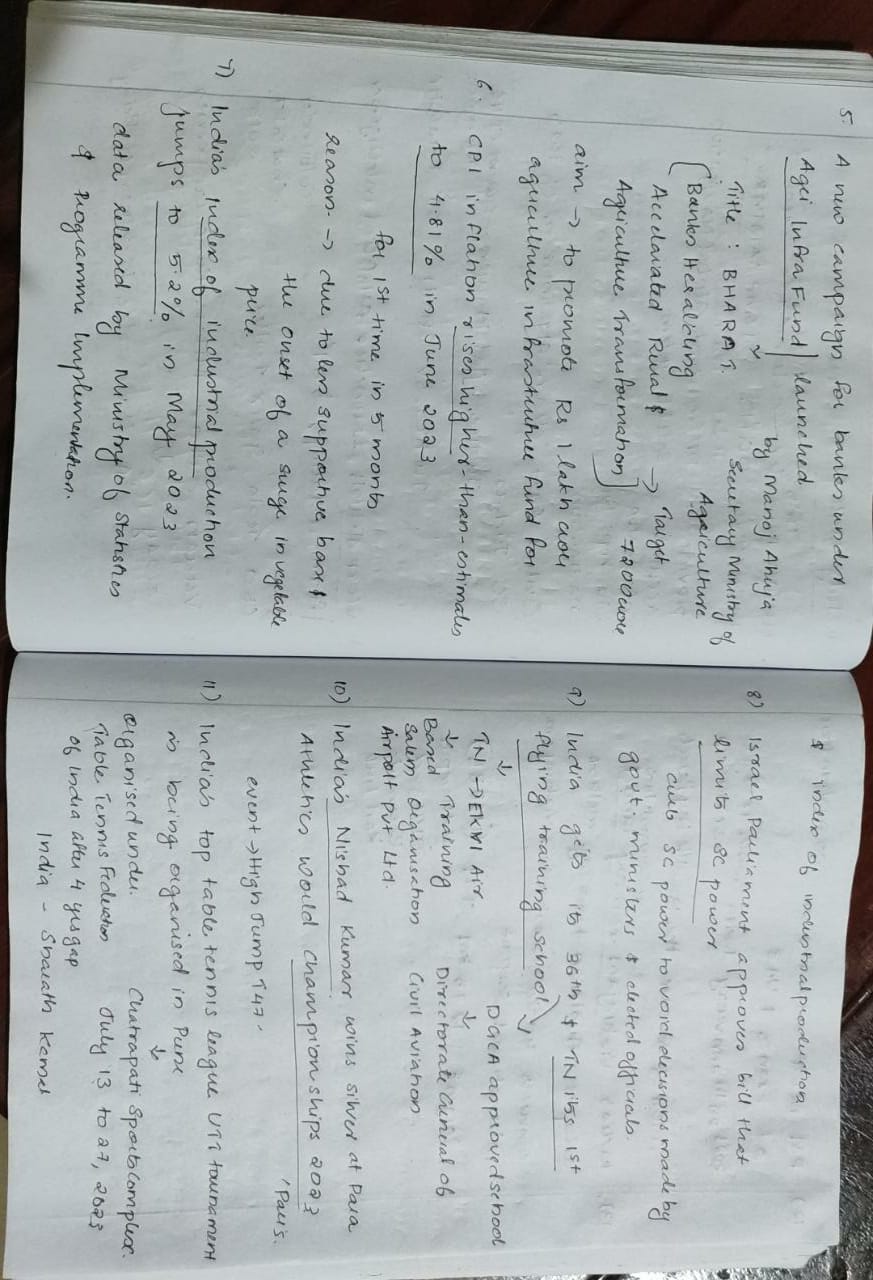 5. A new campaign for banks under
Agri Infra Fund launched
by Manoj Ahuja
Secretary Ministry of
Agriculture
Title : BHARAT.
[Banks Heralding
Accelarated Rural &
Agriculture Transformation]
→ Target
7200 crore
aim → to promote Rs 1 lakh crore
agriculture infrastructure fund for
6. CPI inflation rises higher-than-estimates
to 4.81% in June 2023
for 1st time in 5 months
reason → due to less supportive base &
the onset of a surge in vegetable
price
7) India's Index of industrial production
jumps to 5.2% in May 2023
data released by Ministry of Statistics
& Programme Implementation.
& index of industrial production
8) Israel Parliament approves bill that
limits SC power
curb SC power to void decisions made by
govt. ministers & elected officials.
9) India gets its 36th & TN its 1st
flying training school
↓
TN → EKVI Air
Training
Organisation
Pvt Ltd.
↓
Based
Salem
Airport
DGCA approved school
↓
Directorate General of
Civil Aviation
10) India's Nishad Kumar wins silver at Para
Athletics World Championships 2023
'Paris.
event → High Jump T47.
11) India's top table tennis league UTT tournament
is being organised in Pune
↓
Chatrapati Sports complex.
July 13 to 27, 2023
organised under
Table Tennis Federation
of India after 4 yrs gap
India - Sharath Kamal